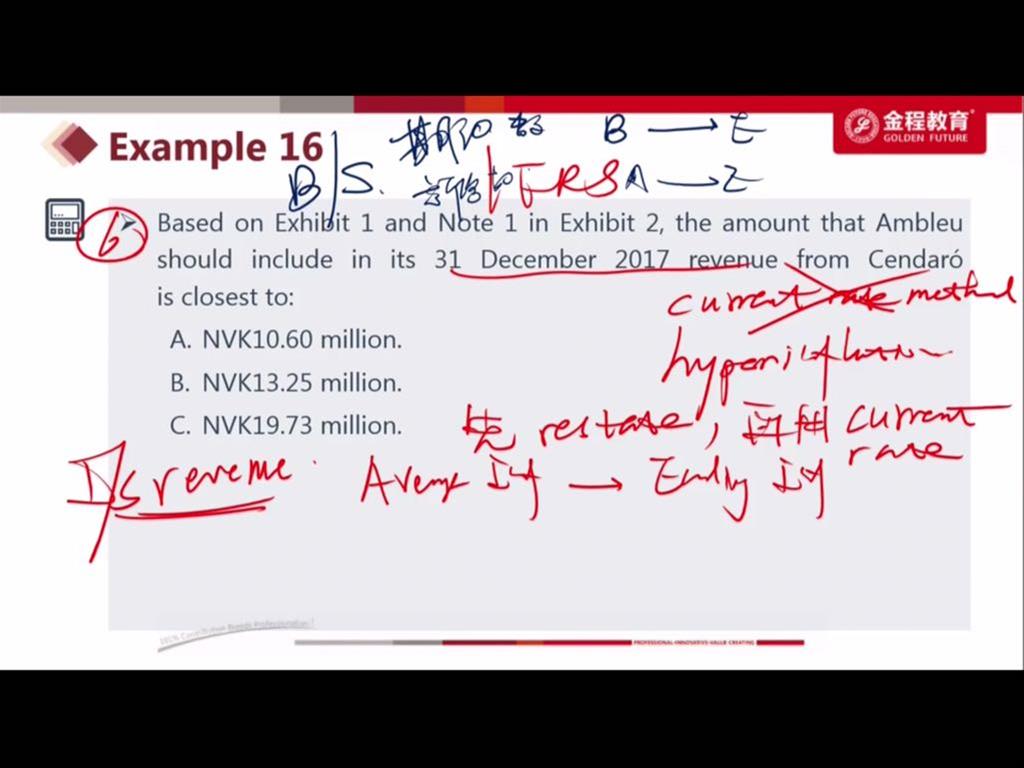 金程教育
GOLDEN FUTURE
Example 16
B → E
B/S. IFRS A → E
6
Based on Exhibit 1 and Note 1 in Exhibit 2, the amount that Ambleu
should include in its 31 December 2017 revenue from Cendaró
is closest to:
current rate method
A. NVK10.60 million.
hyperinflation
B. NVK13.25 million.
C. NVK19.73 million.
先 restate, 再用 current
rate
IS revenue. Average → Ending
100% Contribution Breeds Professionalism!
PROFESSIONAL·INNOVATIVE·VALUE CREATING